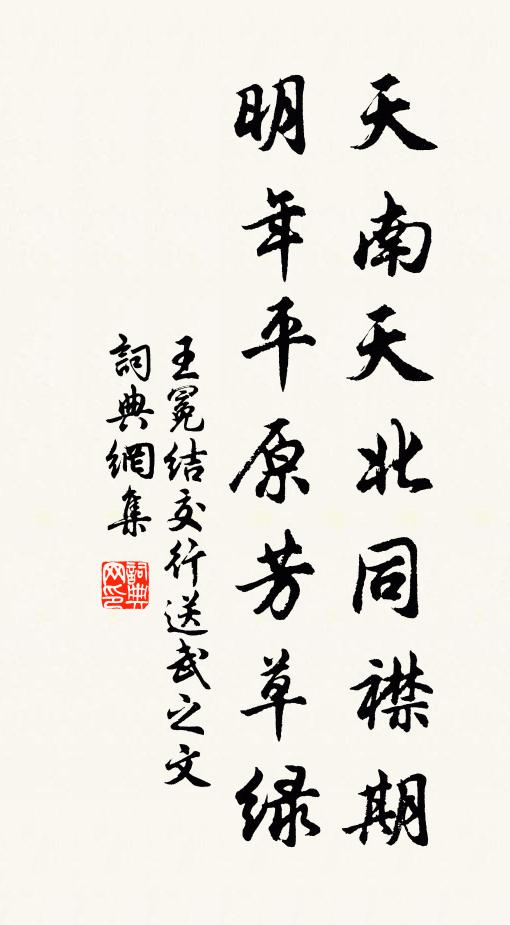 天南天北同襟期
明年平原芳草緑
王冕结交行送武之文
詞典網集
詞典网印